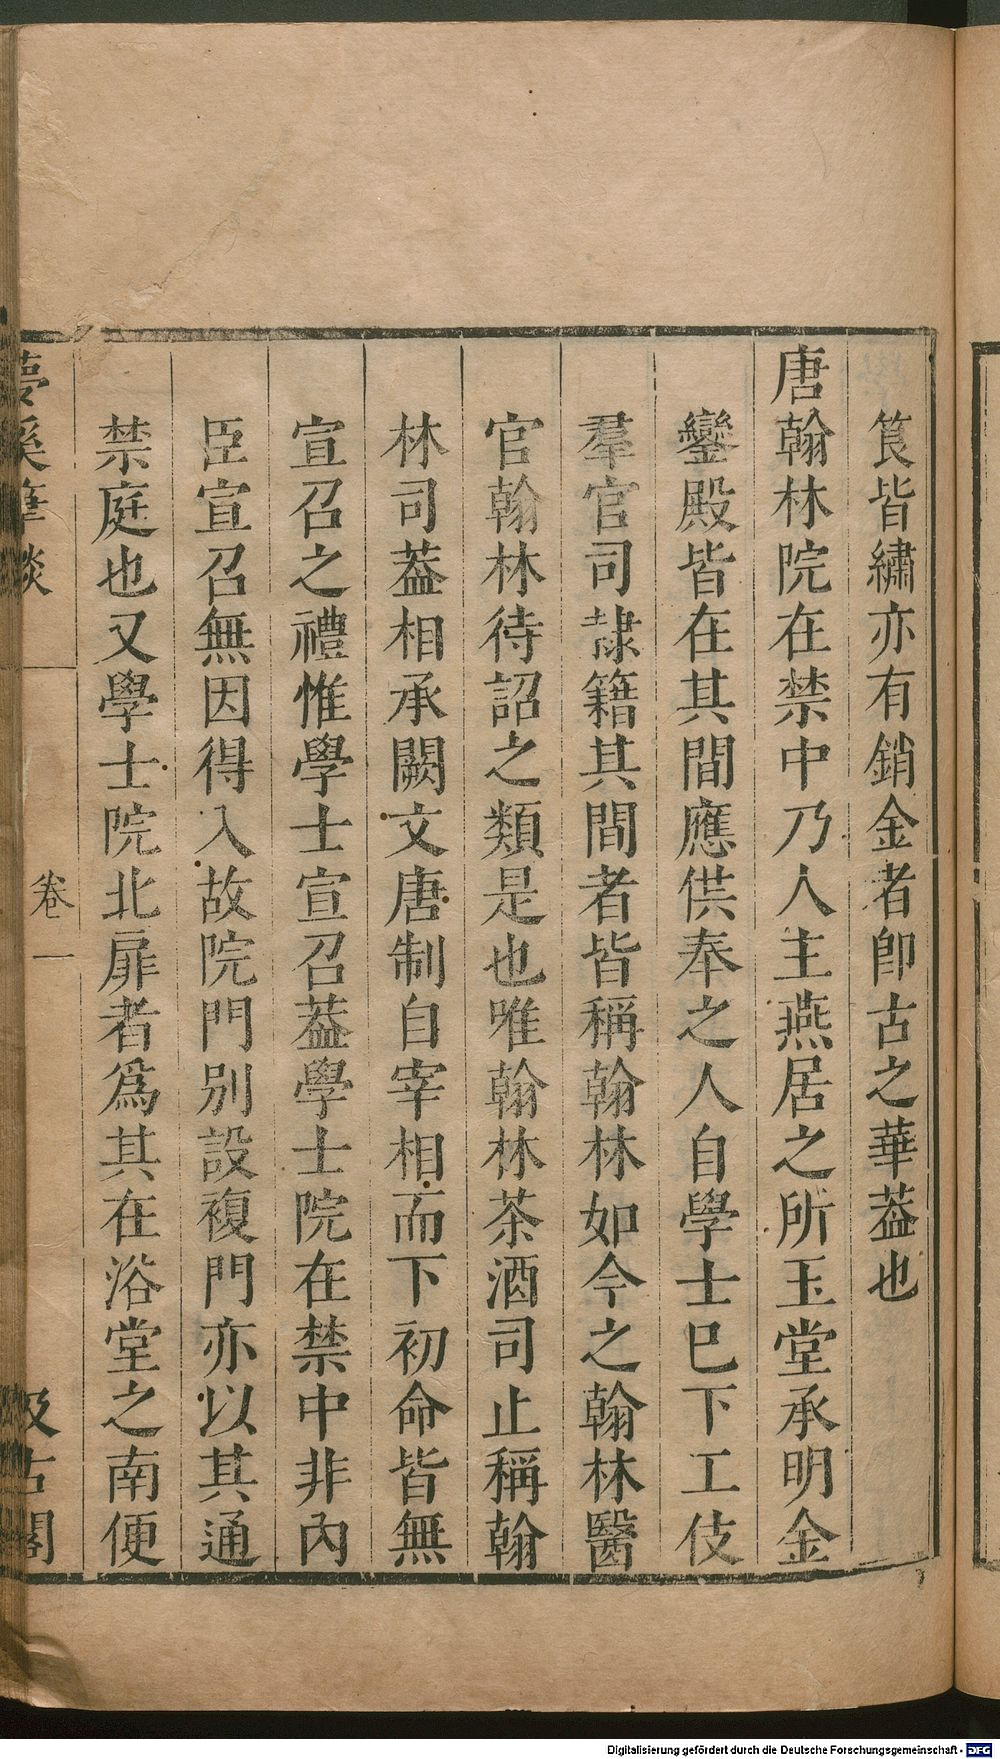 筤皆繡亦有銷金者卽古之華葢也
唐翰林院在禁中乃人主燕居之所玉堂承明金
鑾殿皆在其間應供奉之人自學士已下工伎
羣官司隷籍其間者皆稱翰林如今之翰林醫
官翰林待詔之類是也唯翰林茶酒司止稱翰
林司葢相承闕文唐制自宰相而下初命皆無
宣召之禮惟學士宣召葢學士院在禁中非內
臣宣召無因得入故院門別設複門亦以其通
禁庭也又學士院北扉者爲其在浴堂之南便
夢溪筆談 卷一 汲古閣
Digitalisierung gefördert durch die Deutsche Forschungsgemeinschaft - DFG